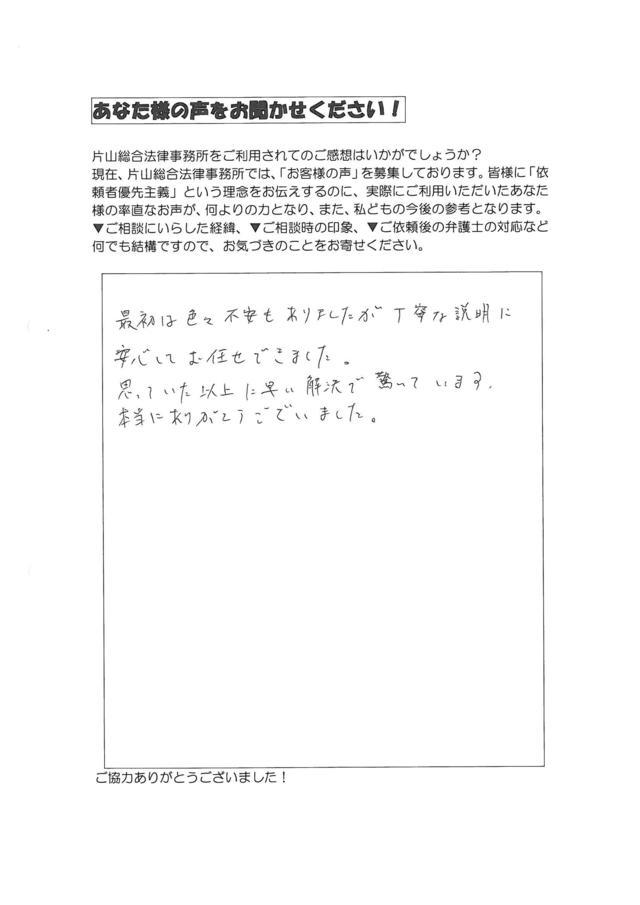 あなた様の声をお聞かせください！
片山総合法律事務所をご利用されてのご感想はいかがでしょうか？
現在、片山総合法律事務所では、「お客様の声」を募集しております。皆様に「依
頼者優先主義」という理念をお伝えするのに、実際にご利用いただいたあなた
様の率直なお声が、何よりの力となり、また、私どもの今後の参考となります。
▼ご相談にいらした経緯、▼ご相談時の印象、▼ご依頼後の弁護士の対応など
何でも結構ですので、お気づきのことをお寄せください。
最初は色々不安もありましたが丁寧な説明に
安心してお任せできました。
思っていた以上に早い解決で驚いています。
本当にありがとうございました。
ご協力ありがとうございました！